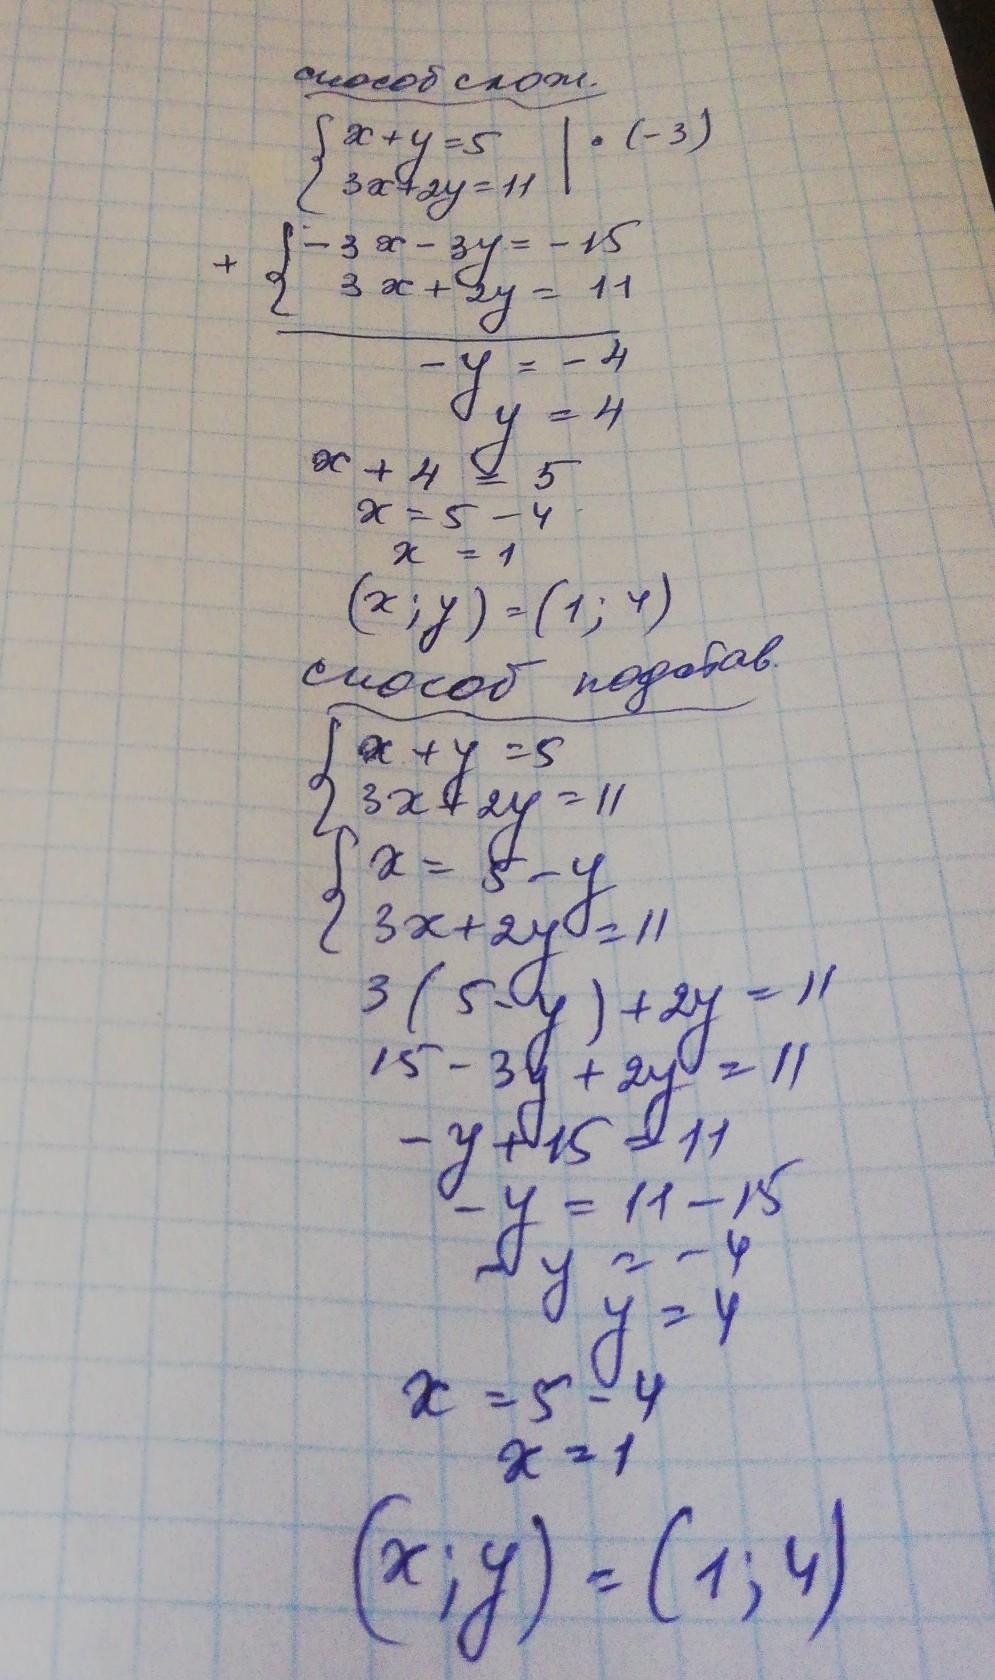 способ слож.
{ x + y = 5 | · (-3)
3x + 2y = 11
+ { -3x - 3y = -15
3x + 2y = 11
-y = -4
y = 4
x + 4 = 5
x = 5 - 4
x = 1
(x; y) = (1; 4)
способ подстав.
{ x + y = 5
3x + 2y = 11
{ x = 5 - y
3x + 2y = 11
3(5 - y) + 2y = 11
15 - 3y + 2y = 11
-y + 15 = 11
-y = 11 - 15
-y = -4
y = 4
x = 5 - 4
x = 1
(x; y) = (1; 4)